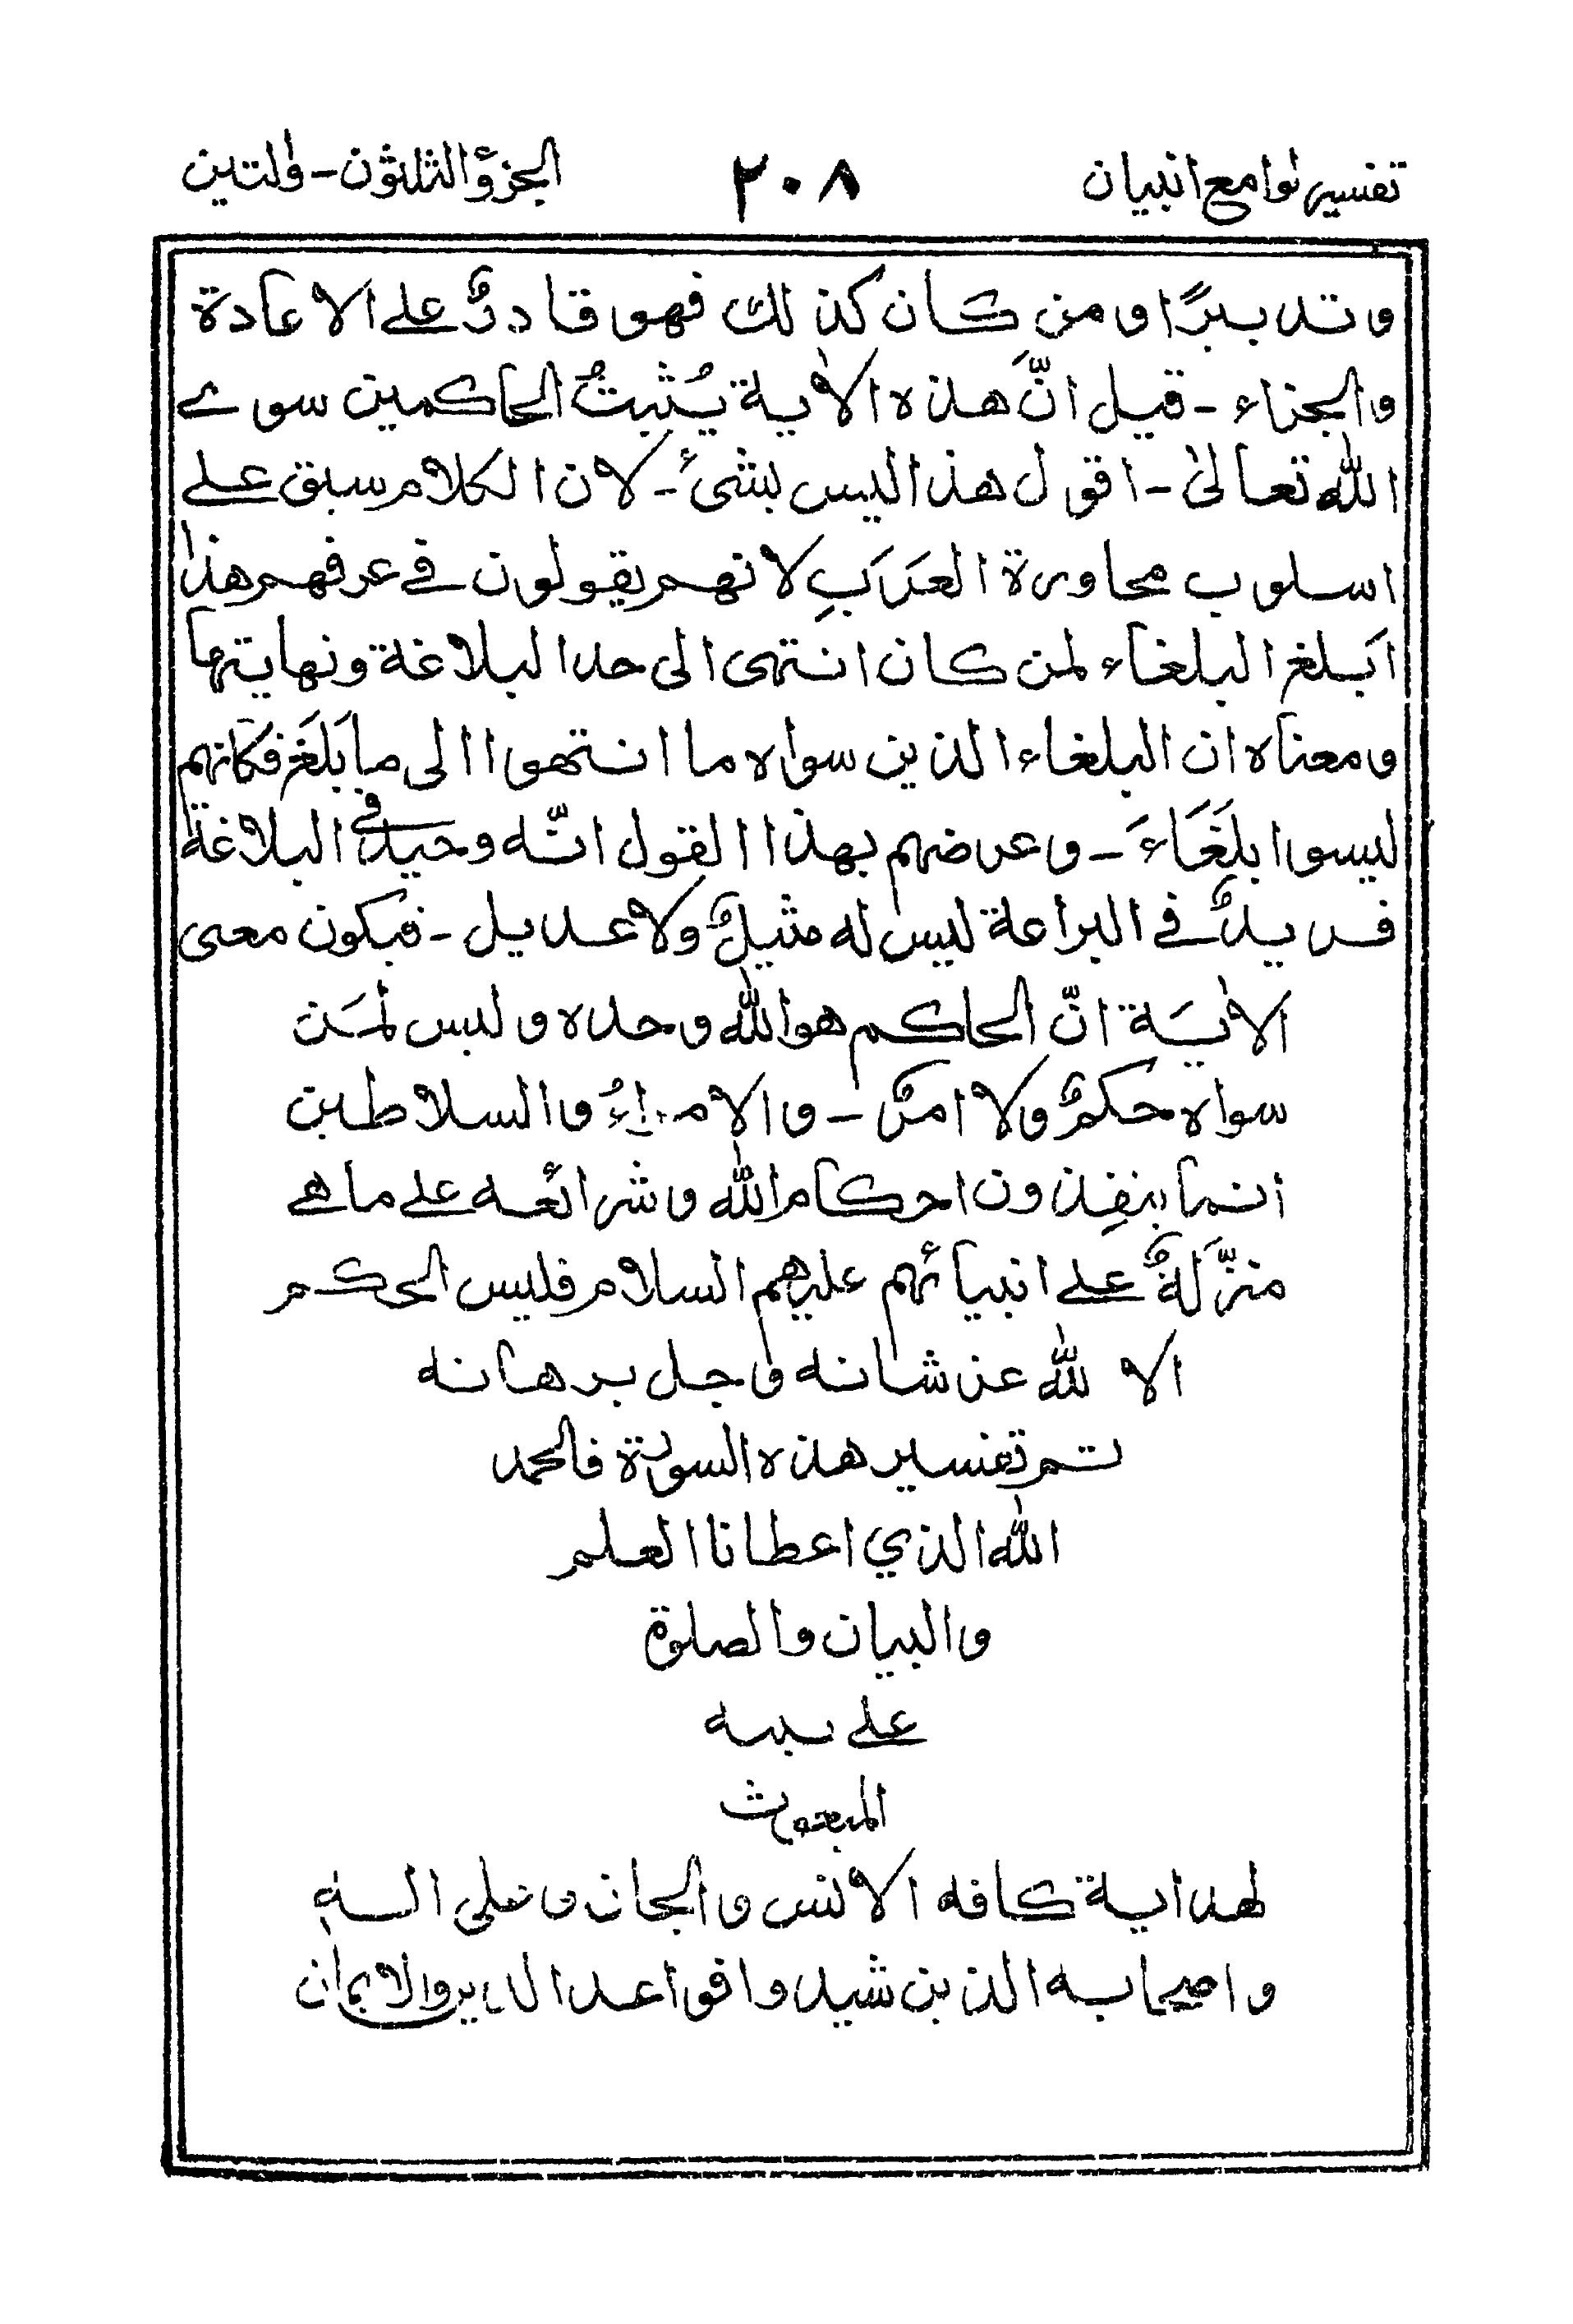 تفسير لوامع البيان
٢٠٨
الجزؤ الثلثون - والتين
وتدبيرًا ومن كان كذلك فهو قادرٌ على الاعادة
والجزاء - قيل انَّ هذه الاٰية يُثبتُ الحاكمين سوے
اللّٰه تعالىٰ - اقول هذا ليس بشئ - لان الكلام سبق على
اسلوب محاورة العَرَبِ لانهم يقولون في عرفهم هذا
اَبلغ البلغاء لمن كان انتهى الى حد البلاغة ونهايتها
ومعناه ان البلغاء الذين سواه ما انتهوا الى ما بَلَغَ فكانهم
ليسوا بلَغَاءَ - وغرضهم بهذا القول انّه وحيدٌ في البلاغة
فريدٌ في البراعة ليس له مثيلٌ ولا عديل - فيكون معنى
الاٰيَة انّ الحاكم هو اللّٰه وحده وليس لمَن
سواه حكمٌ ولا امرٌ - والامراءُ والسلاطين
انما ينفِذون احكام اللّٰه وشرائعه على ما هے
منزَّلةٌ على انبيائهم عليهم السلام فليس الحكم
الا للّٰه عز شانه وجل برهانه
تم تفسير هذه السورة فالحمد
اللّٰه الذي اعطانا العلم
والبيان والصلوة
على نبيه
المبعوث
لهداية كافه الانس والجان وعلى اله
واصحابه الذين شيدوا قواعد الدين والايمان